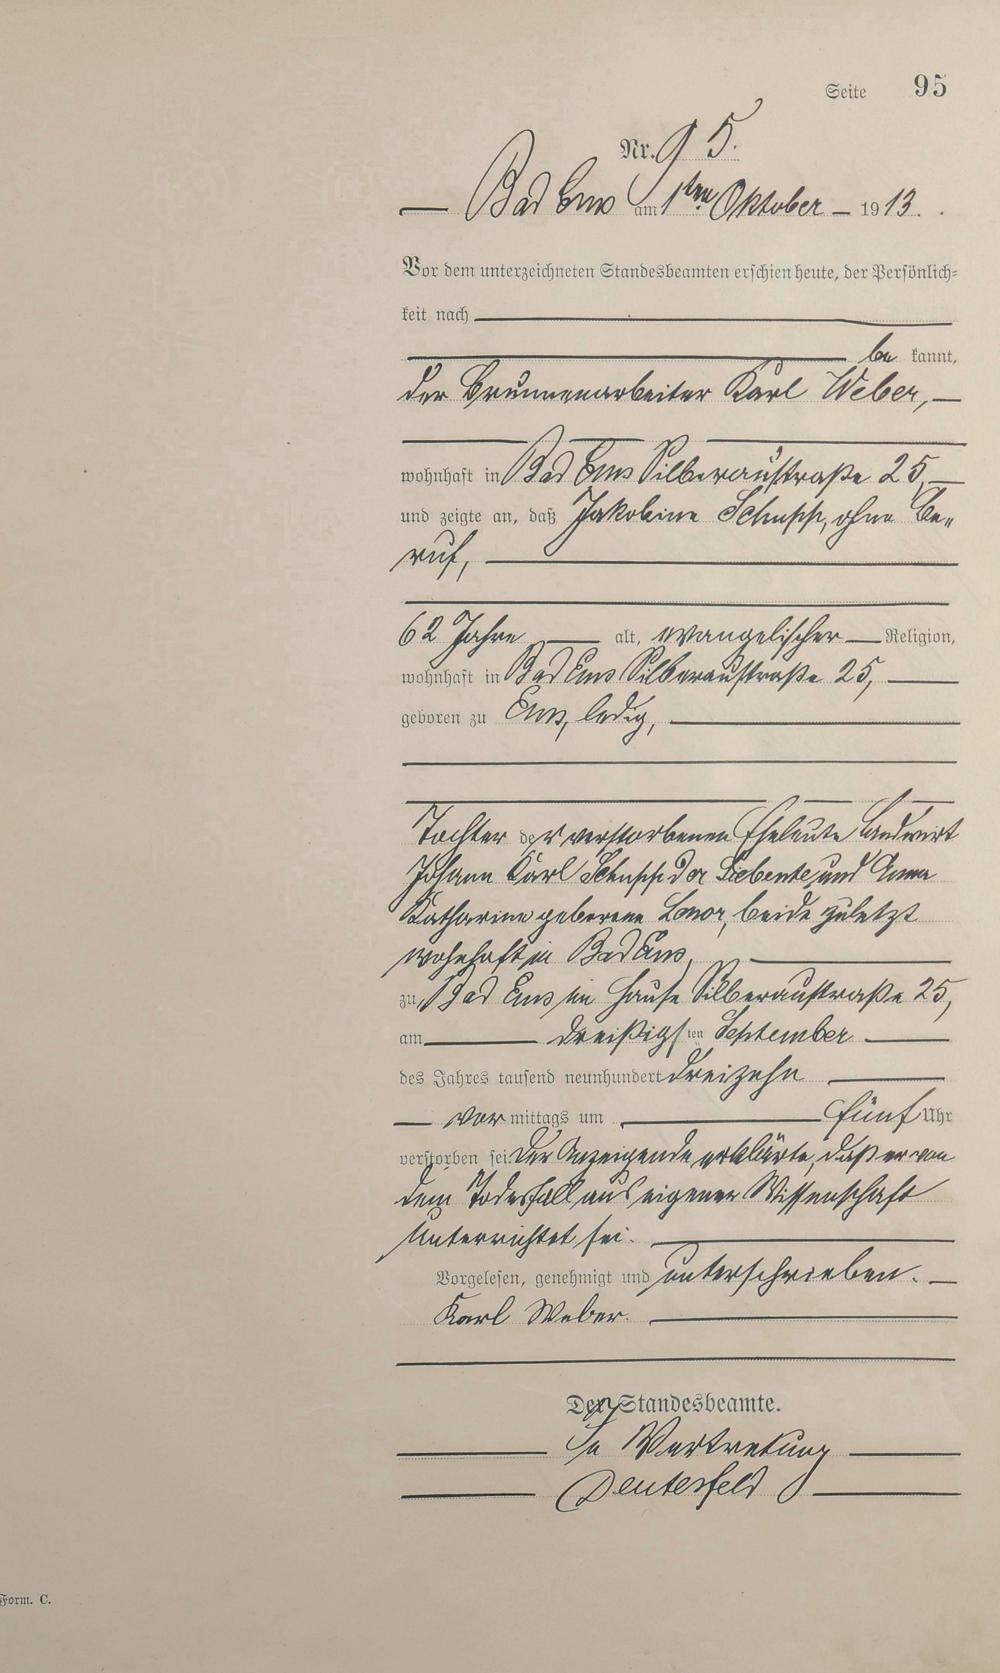 Seite 95
Nr. 95.
Bad Ems am 1ten Oktober 1913.
Vor dem unterzeichneten Standesbeamten erschien heute, der Persönlich-
keit nach
be kannt,
der Brunnenarbeiter Karl Weber,
wohnhaft in Bad Ems Silberaustraße 25,
und zeigte an, daß Jakobine Schupp, ohne Be-
ruf,
62 Jahre alt, evangelischer Religion,
wohnhaft in Bad Ems Silberaustraße 25,
geboren zu Ems, ledig,
Tochter der verstorbenen Eheleute Landwirt
Johann Karl Schupp der Siebente und Anna
Katharine geborene, beide zuletzt
wohnhaft in Bad Ems,
zu Bad Ems im Hause Silberaustraße 25,
am dreißigsten September
des Jahres tausend neunhundert dreizehn
vor mittags um fünf Uhr
verstorben sei. Der Anzeigende erklärte, daß er von
dem Todesfall aus eigener Wissenschaft
unterrichtet sei.
Vorgelesen, genehmigt und unterschrieben.
Karl Weber.
Der Standesbeamte.
In Vertretung
Form. C.